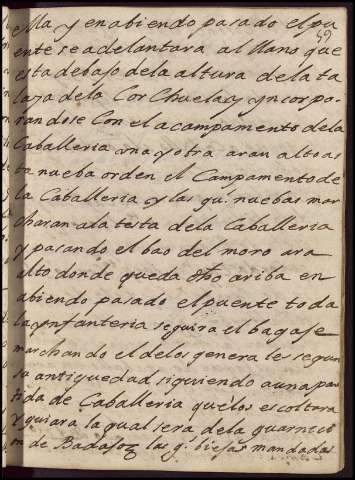 ella y en abiendo pasado el pu
49
ente se adelantara al llano que
esta debajo dela altura de la ta
laya dela Corchuela, y yncorpo
randose Con el acampamento dela
Caballeria una y otra aran alto as
ta nueba orden el Campamento de
la Caballeria y las gu. nuebas mar
charan ala testa dela Caballeria
y pasando el bao del moro ara
alto donde queda dho ariba en
abiendo pasado el puente toda
la ynfanteria seguira el bagaje
marchando el delos generales segun
su antiguedad siguiendo a una par
tida de Caballeria que los escoltara
y guiara la qual sera dela guarnici
on de Badajoz las gu. biejas mandadas